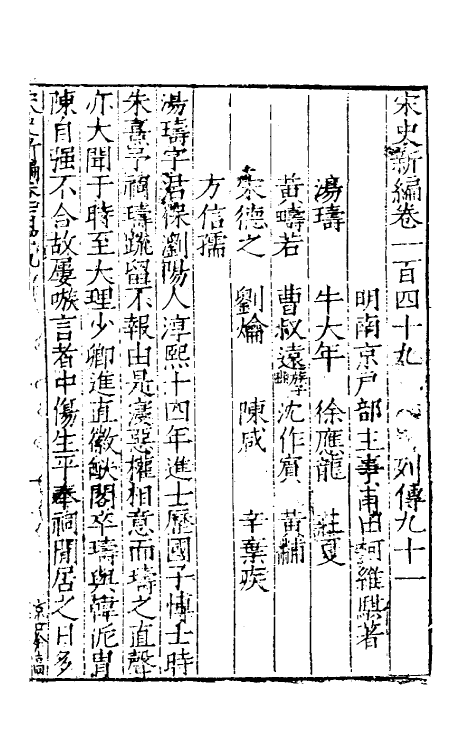 宋史新編卷一百四十九　列傳九十一
明南京戶部主事莆田柯維騏著
湯璹　牛大年　徐應龍　莊夏
黃疇若　曹叔遠族子豳　沈作賓　黃黼
袁德之　劉爚　陳咸　辛棄疾
方信孺
湯璹字君保劉陽人淳熙十四年進士歷國子博士時
朱熹予祠璹疏留不報由是寖惡權相意而璹之直聲
亦大聞于時至大理少卿進直徽猷閣卒璹與韓侂胄
陳自强不合故屢嗾言者中傷生平奉祠閒居之日多
宋史新編卷一百四九